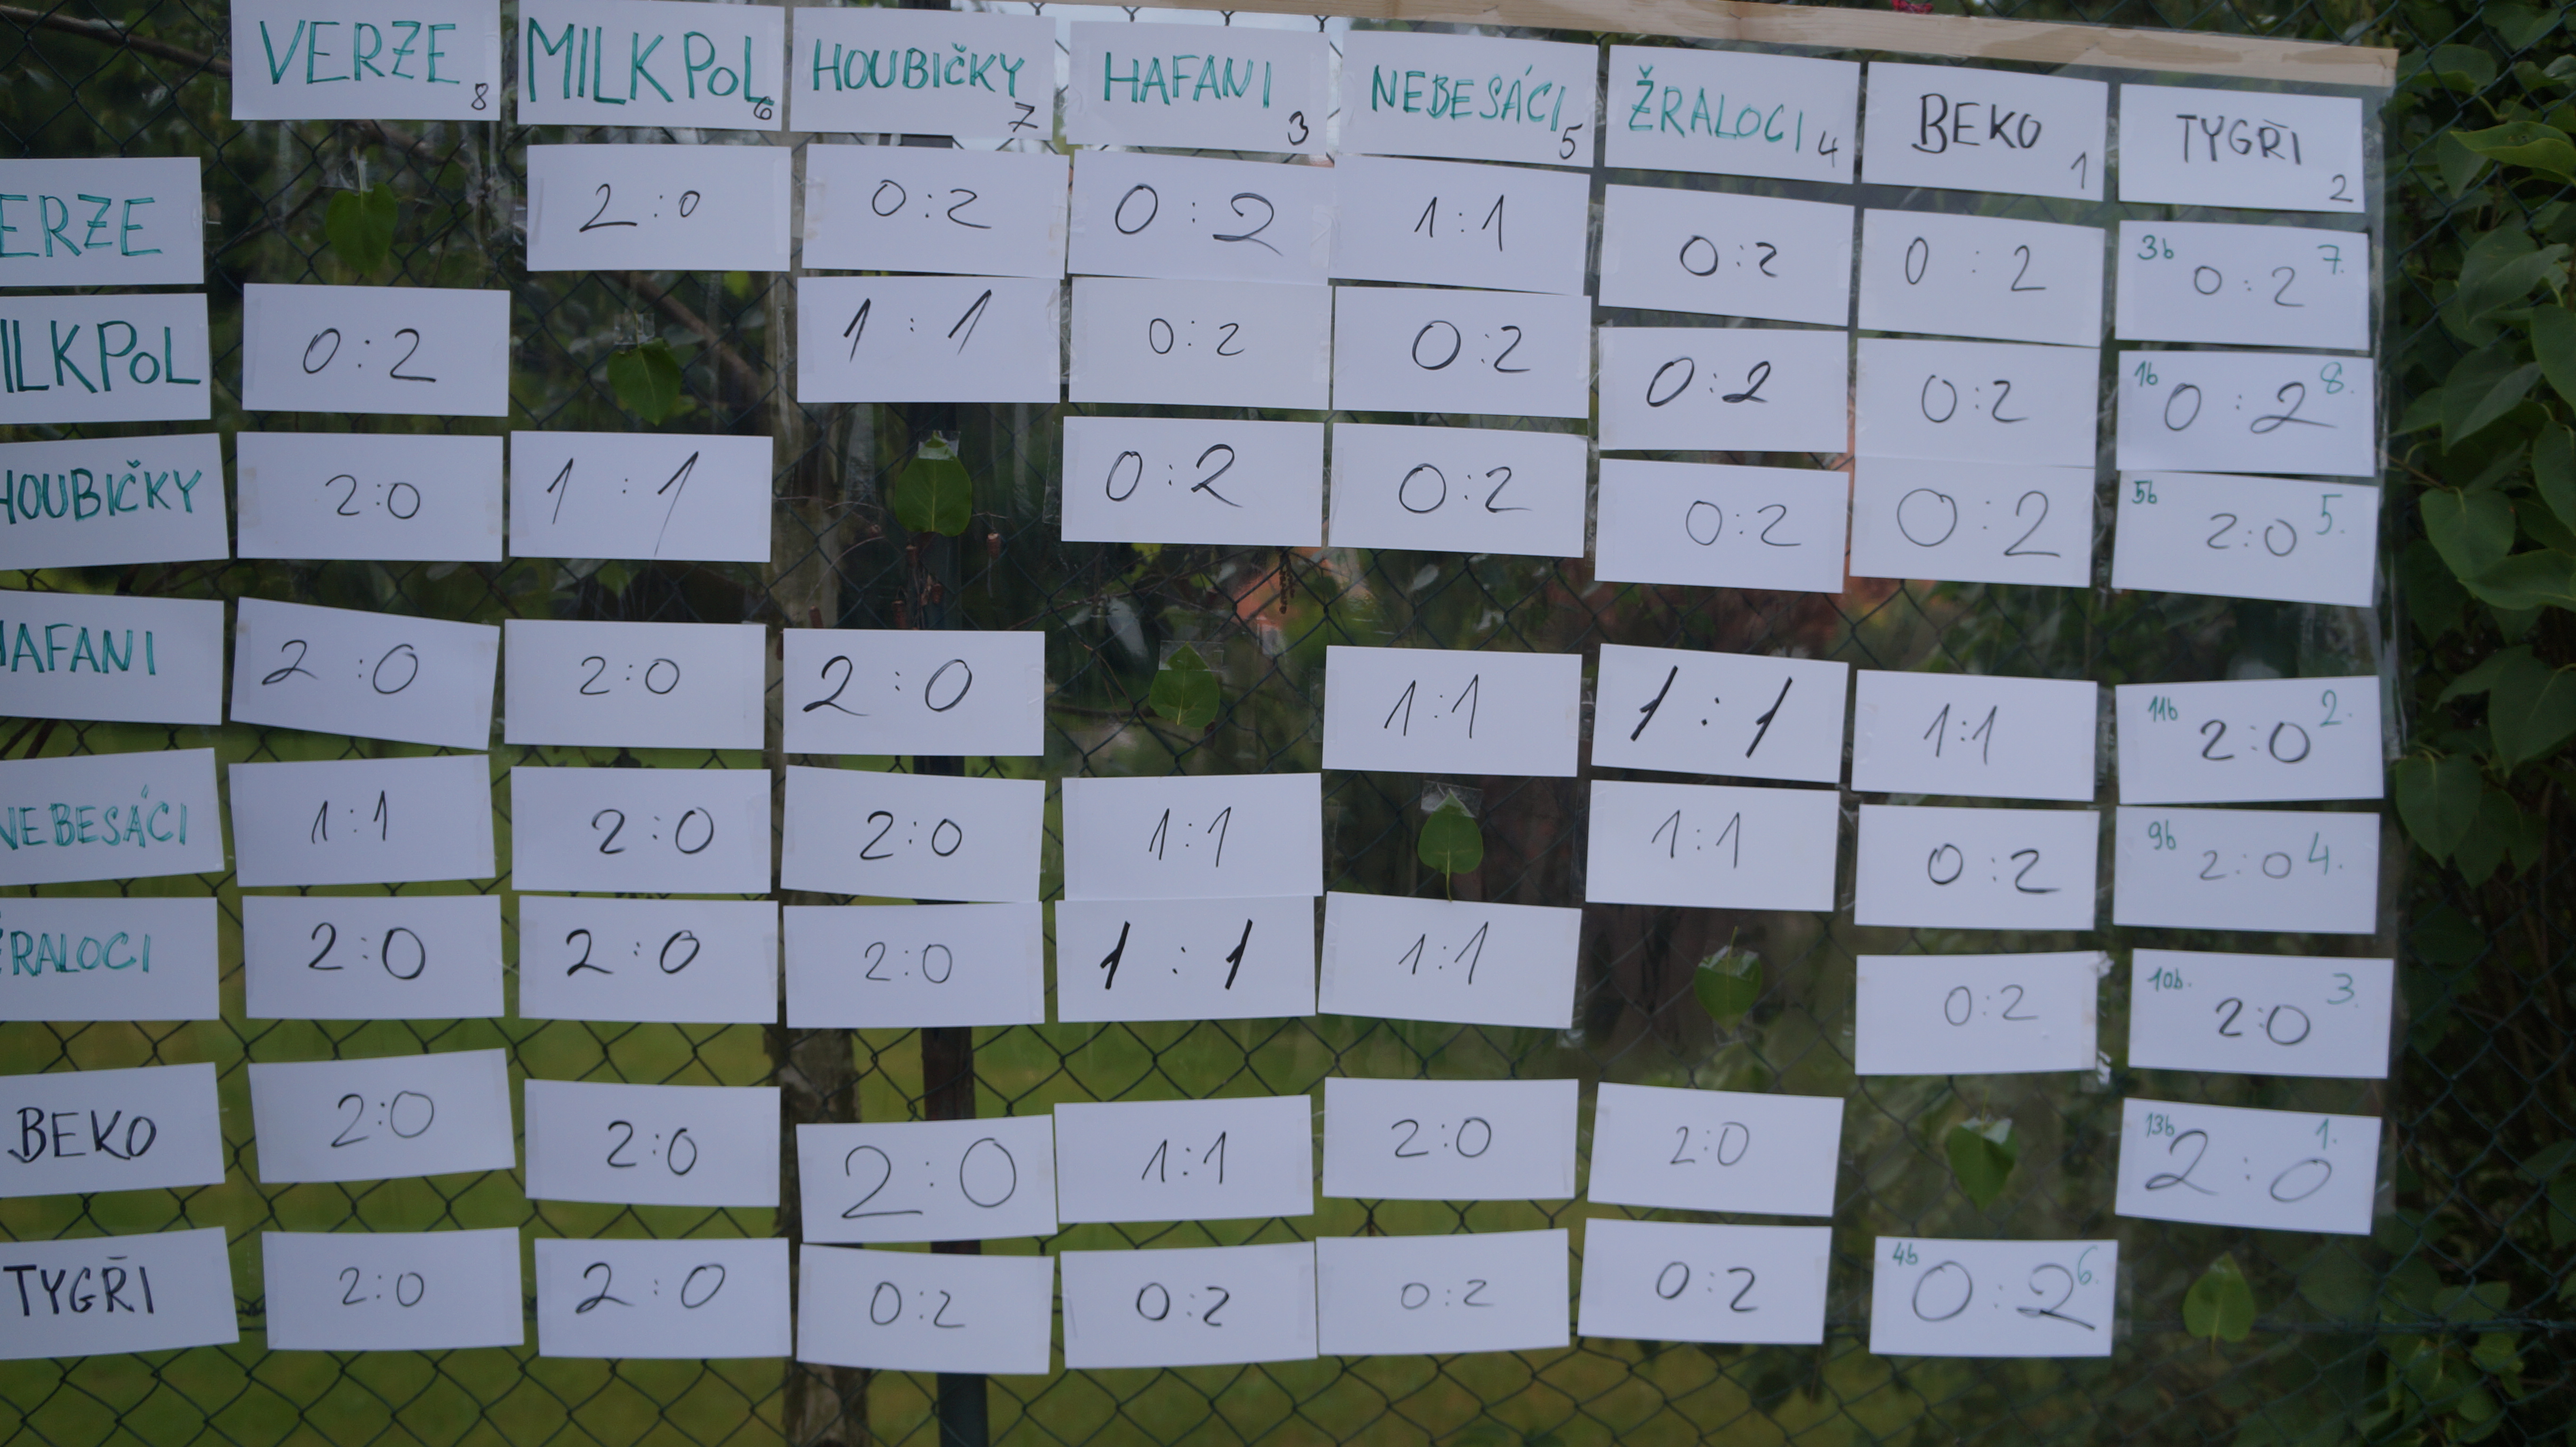 VERZE 8 MILKPOL 6 HOUBIČKY 7 HAFANI 3 NEBESÁCI 5 ŽRALOCI 4 BEKO 1 TYGŘI 2
ERZE 2:0 0:2 0:2 1:1 0:2 0:2 3b 0:2 7.
ILKPOL 0:2 1:1 0:2 0:2 0:2 0:2 1b 0:2 8.
HOUBIČKY 2:0 1:1 0:2 0:2 0:2 0:2 5b 2:0 5.
HAFANI 2:0 2:0 2:0 1:1 1:1 1:1 11b 2:0 2.
NEBESÁCI 1:1 2:0 2:0 1:1 1:1 0:2 9b 2:0 4.
ŽRALOCI 2:0 2:0 2:0 1:1 1:1 0:2 10b. 2:0 3.
BEKO 2:0 2:0 2:0 1:1 2:0 2:0 13b 2:0 1.
TYGŘI 2:0 2:0 0:2 0:2 0:2 0:2 4b 0:2 6.